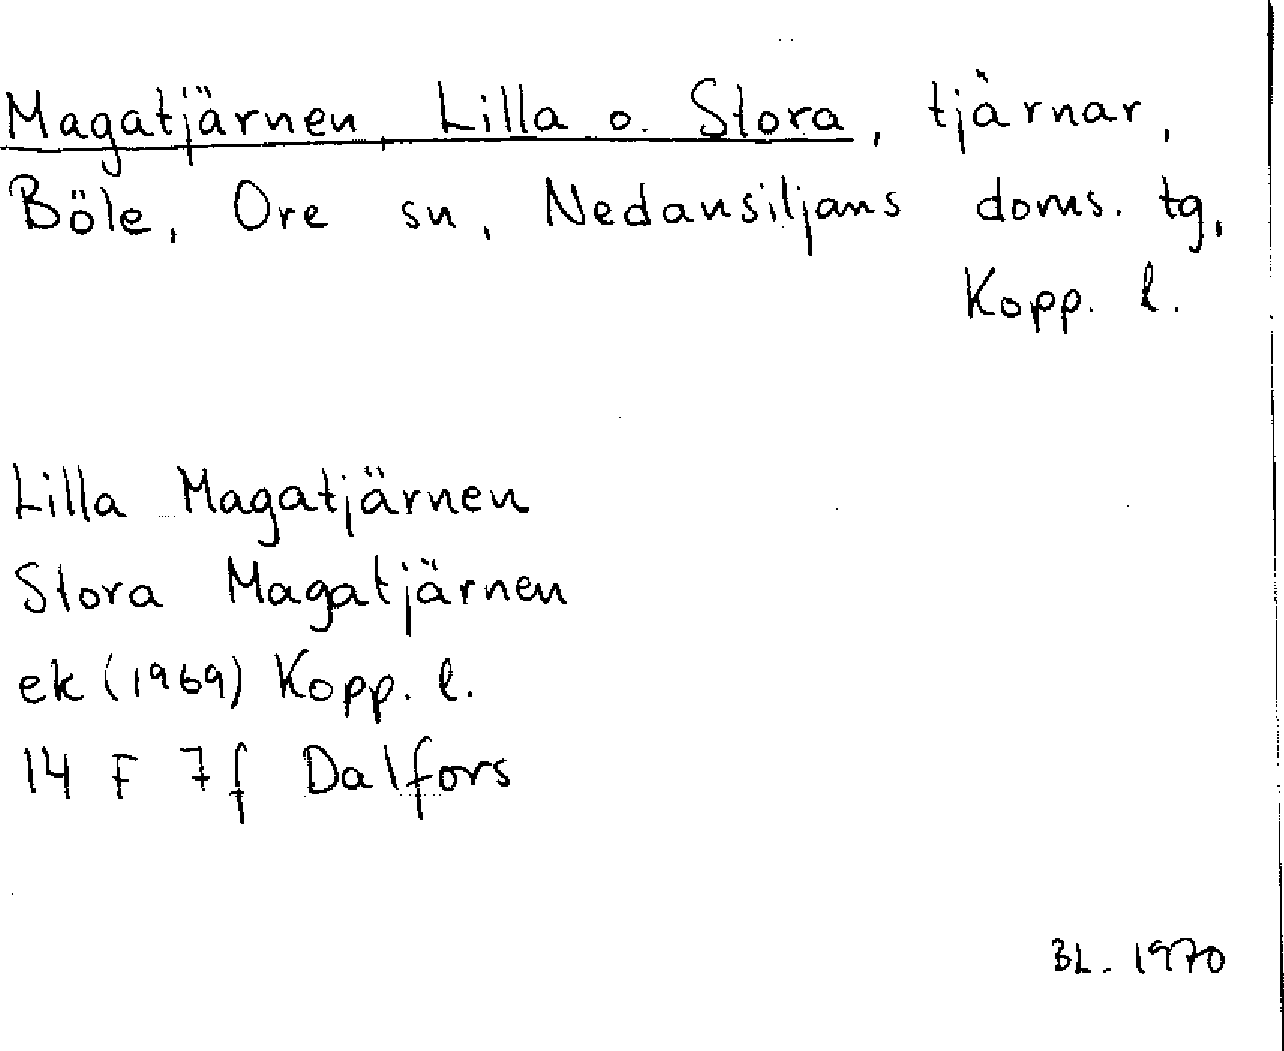 Magatjärnen, Lilla o. Stora, tjärnar,
Böle, Ore sn, Nedansiljans doms. tg,
Kopp. l.
Lilla Magatjärnen
Stora Magatjärnen
ek (1969) Kopp. l.
14 F 7f Dalfors
BL. 1970